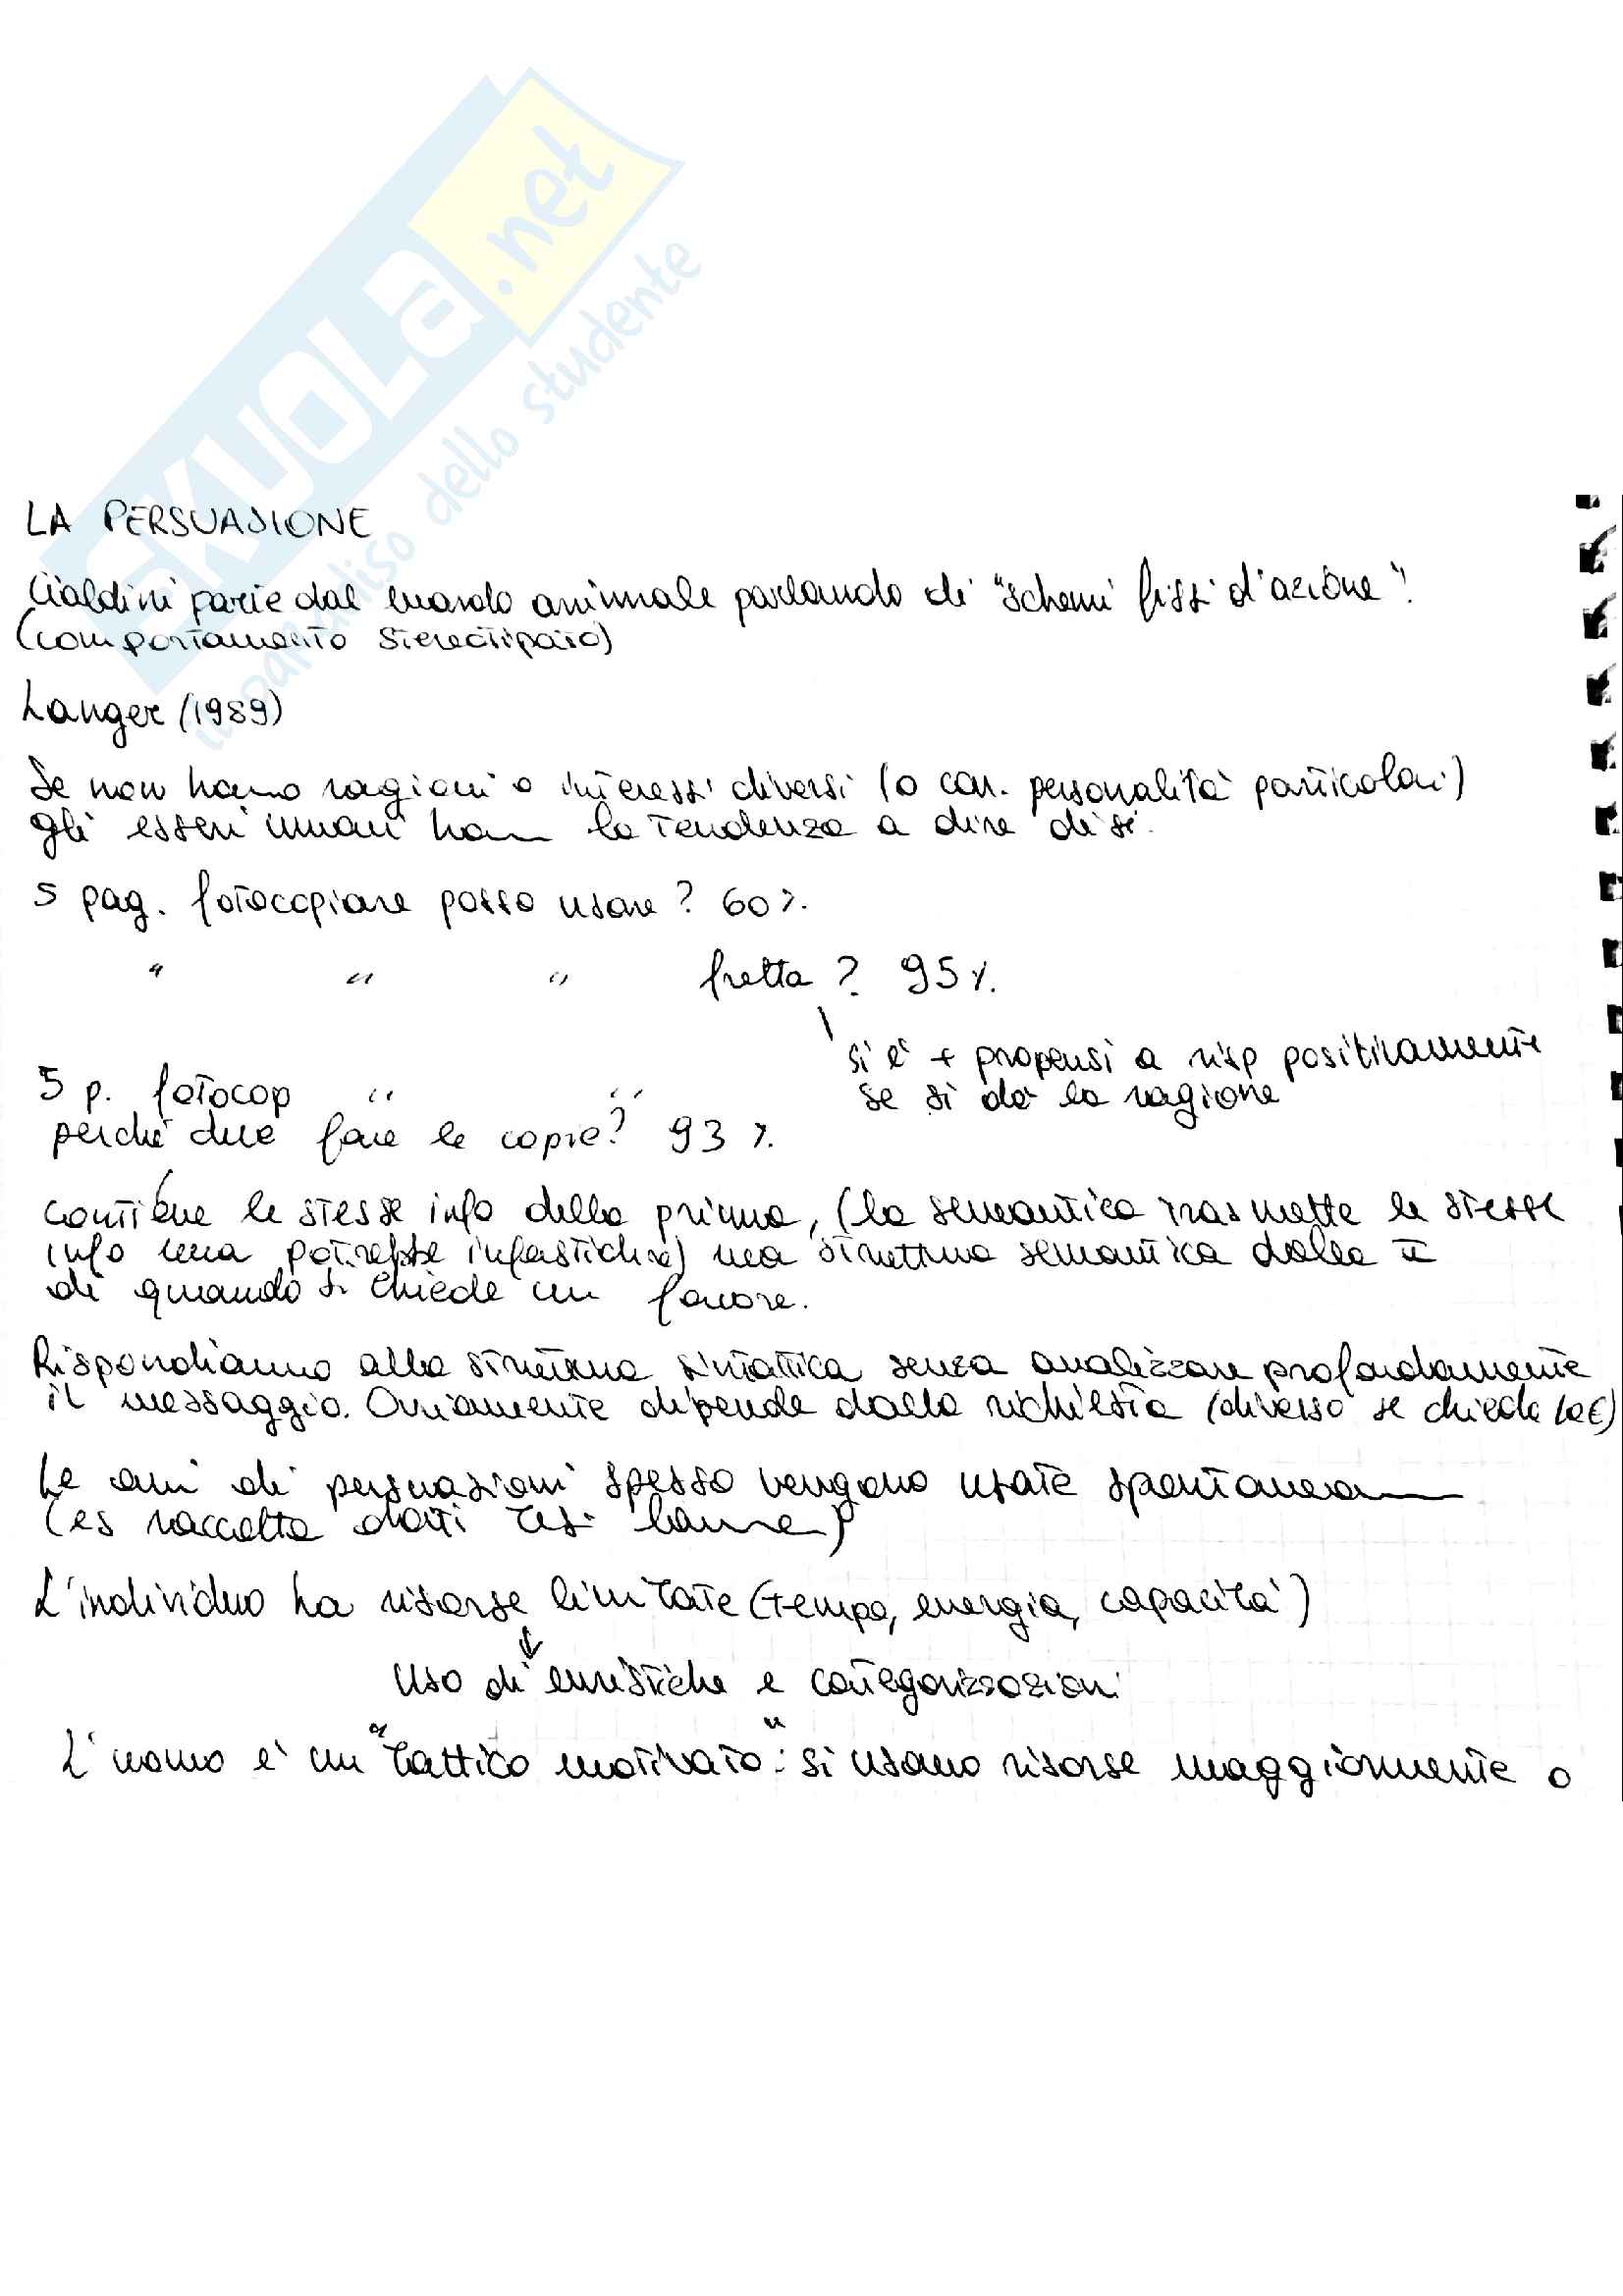 SKUOLA.net
il paradiso dello studente
LA PERSUASIONE
Cialdini parte dal mondo animale parlando di "schemi fissi d'azione".
(comportamento stereotipato)
Langer (1989)
Se non hanno ragioni o interessi diversi (o car. personalità particolari)
gli esseri umani han la tendenza a dire di sì.
5 pag. fotocopiare posso usare? 60%.
" " " fretta? 95%.
si è + propensi a risp positivamente
se si dà la ragione
5 p. fotocop " "
perché devo fare le copie? 93%.
contiene le stesse info della prima, (la semantica trasmette le stesse
info ma potrebbe infastidire) ma struttura semantica della
di quando si chiede un favore.
Rispondiamo alla struttura sintattica senza analizzare profondamente
il messaggio. Ovviamente dipende dalla richiesta (diverso se chiede
Le armi di persuasioni spesso vengono usate spontanea
(es raccolta dati tesi
L'individuo ha risorse limitate (tempo, energia, capacità)
↓
Uso di euristiche e categorizzazioni
L'uomo è un "tattico motivato": si usano risorse maggiormente o